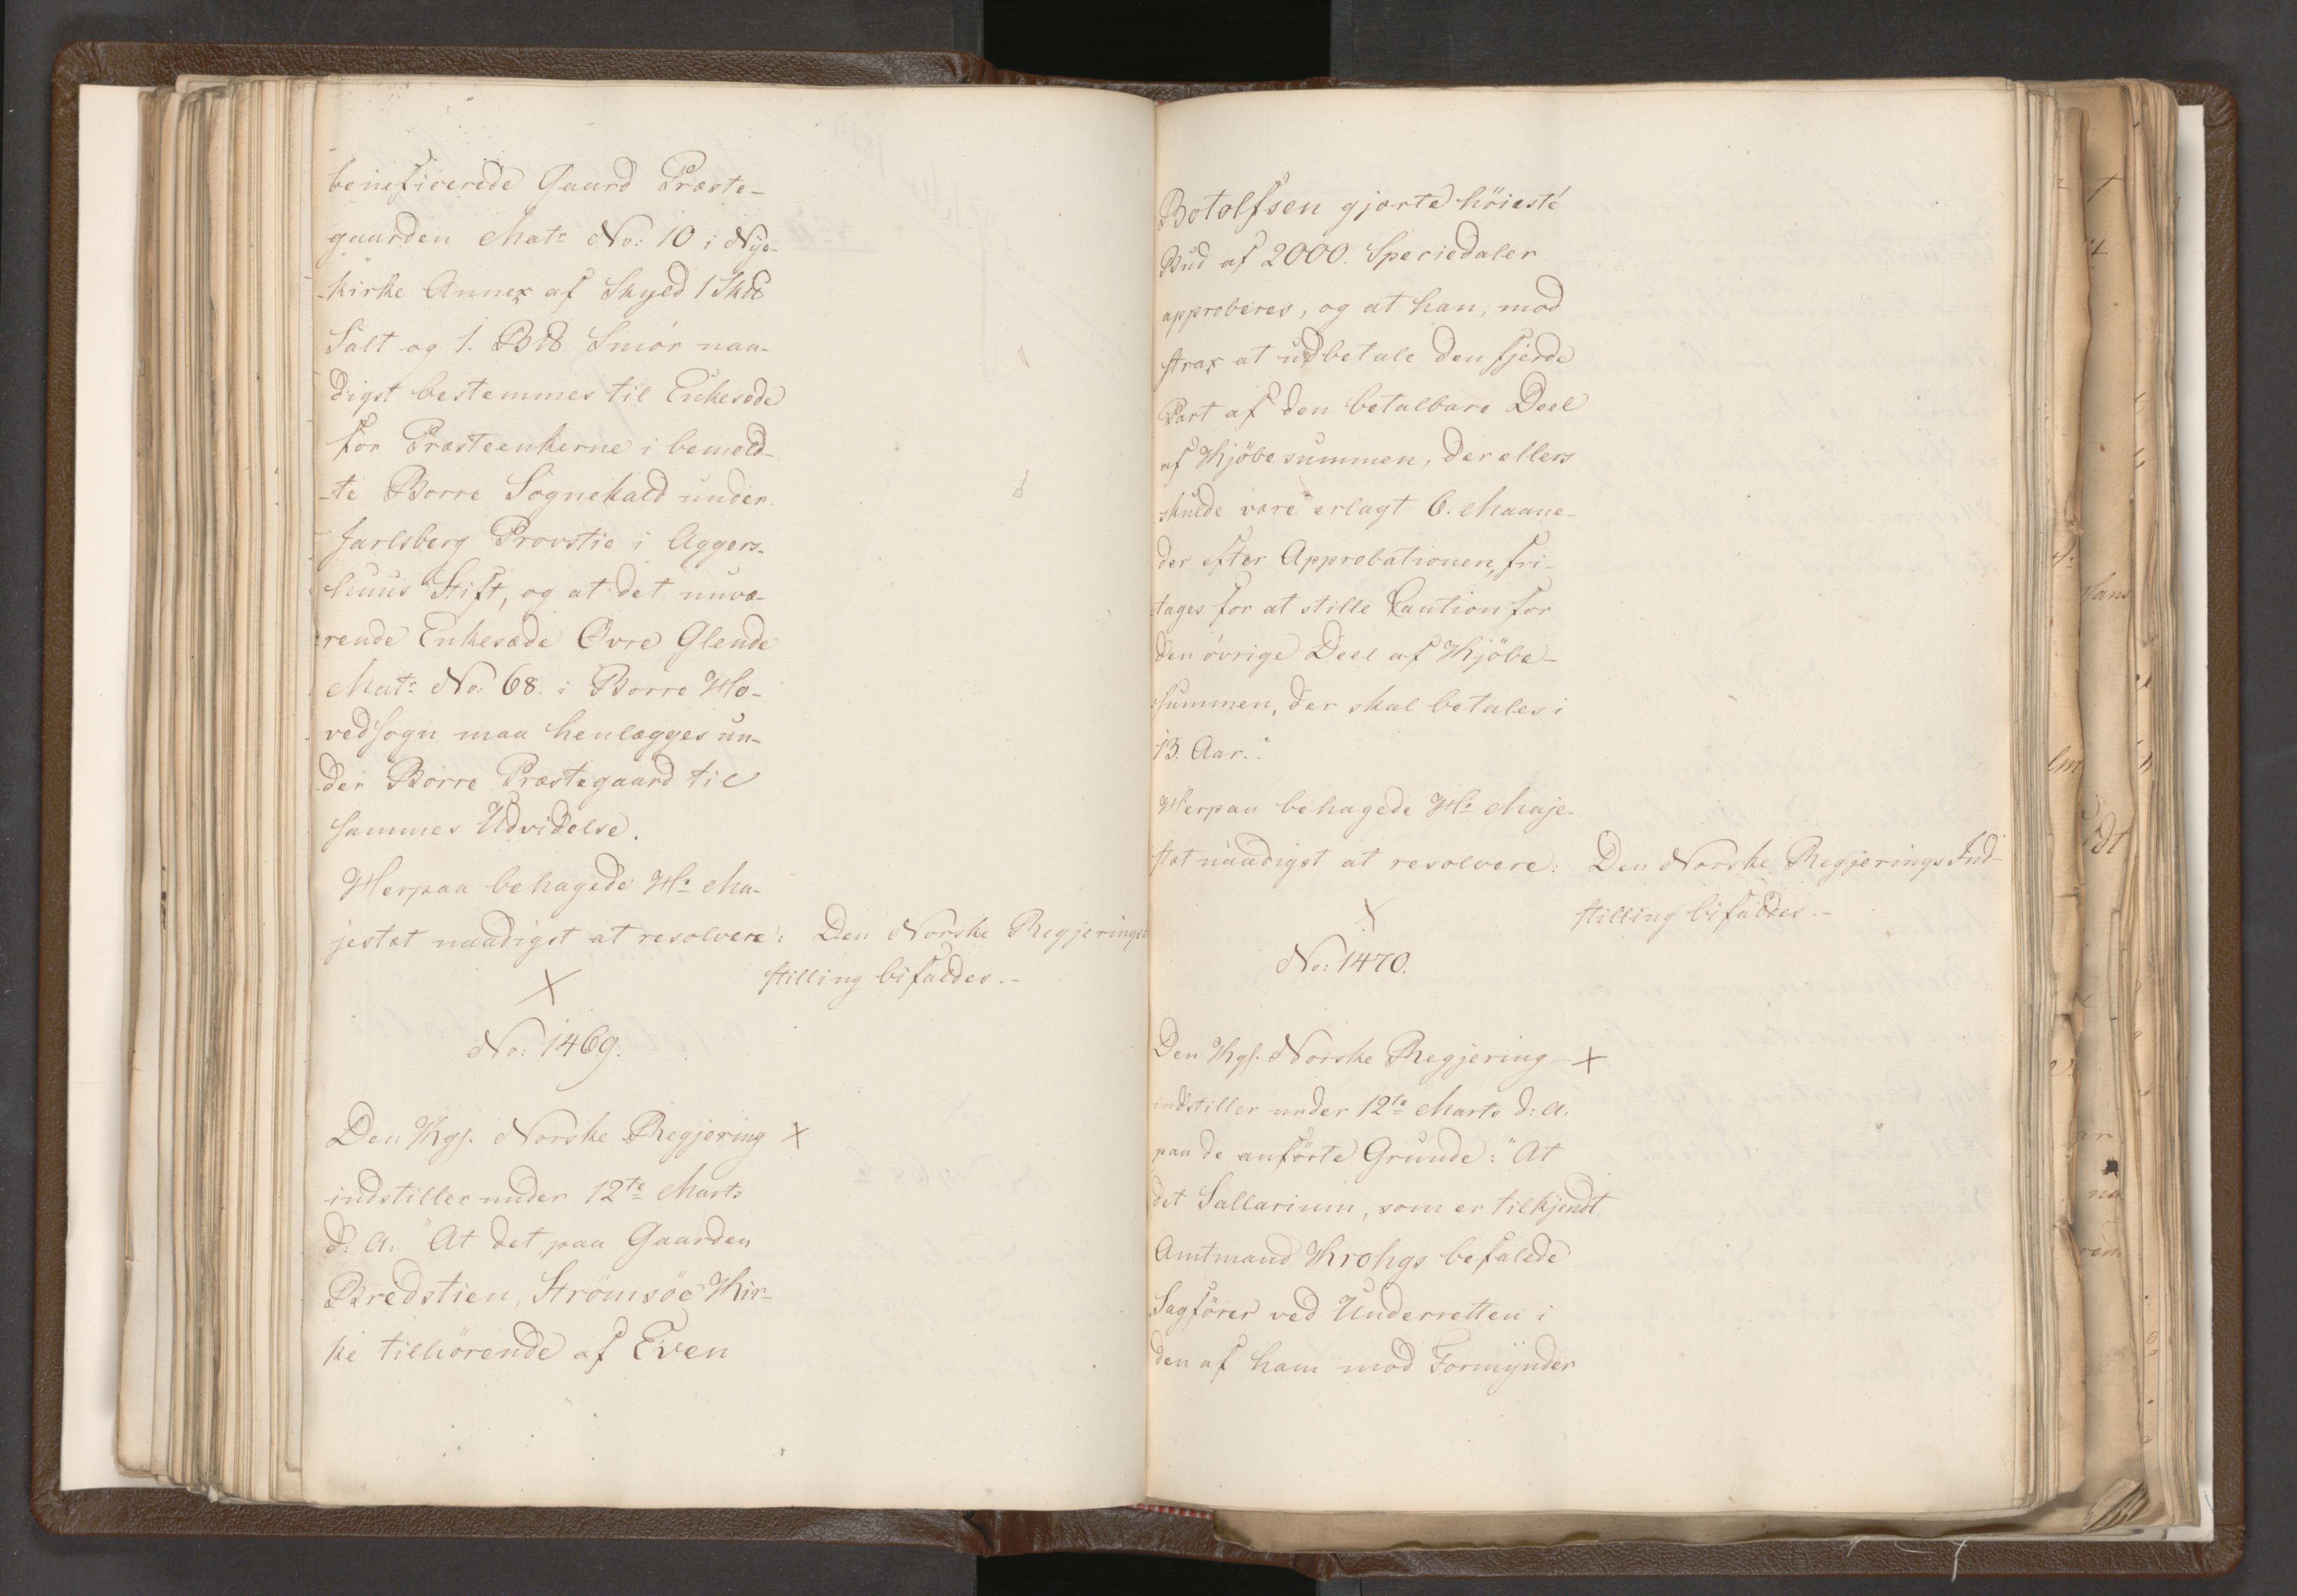 beneficerede Gaard Præste-
gaarden Matr No: 10 i Nye-
-kirke Annex af Skyld 1 Sk℔
Salt og 1. B℔ Smör naa-
digst bestemmes til Enkesæde
for Præsteenkerne i bemeld-
-te Borre Sognekald under
Jarlsberg Provstie i Aggers-
huus Stift, og at det nuvæ-
rende Enkesæde Övre Glende
Matr No: 68. i Borre Ho-
vedsogn maa henlægges un-
der Borre Præstegaard til
sammes Udvidelse.
Herpaa behagede Hs Ma-
jestæt naadigst at resolvere: Den Norske Regjerings
stilling bifaldes.-
No: 1469.
Den Kgl. Norske Regjering
indstiller under 12te Marts
d: A: "At det paa Gaarden
Bredstien, Strömsöe Kir-
ke tilhörende af Even
Botolfsen gjorte höieste
Bud af 2000. Speciedaler
approberes, og at han, mod
strax at udbetale den fjerde
Part af den betalbare Deel
af Kjöbesummen, der ellers
skulde være erlagt 6. Maane-
der efter Approbationen, fri-
tages for at stille Caution for
den övrige Deel af Kjöbe-
summen, der skal betales i
13. Aar."
Herpaa behagede Hs Maje-
stæt naadigst at resolvere: Den Norske Regjerings Ind-
stilling bifaldes.-
No: 1470.
Den Kgl. Norske Regjering
indstiller under 12te Marts d: A:
paa de anförte Grunde: "At
det Sallarium, som er tilkjendt
Amtmand Krohgs befalede
Sagförer ved Underretten i
den af ham mod Formynder